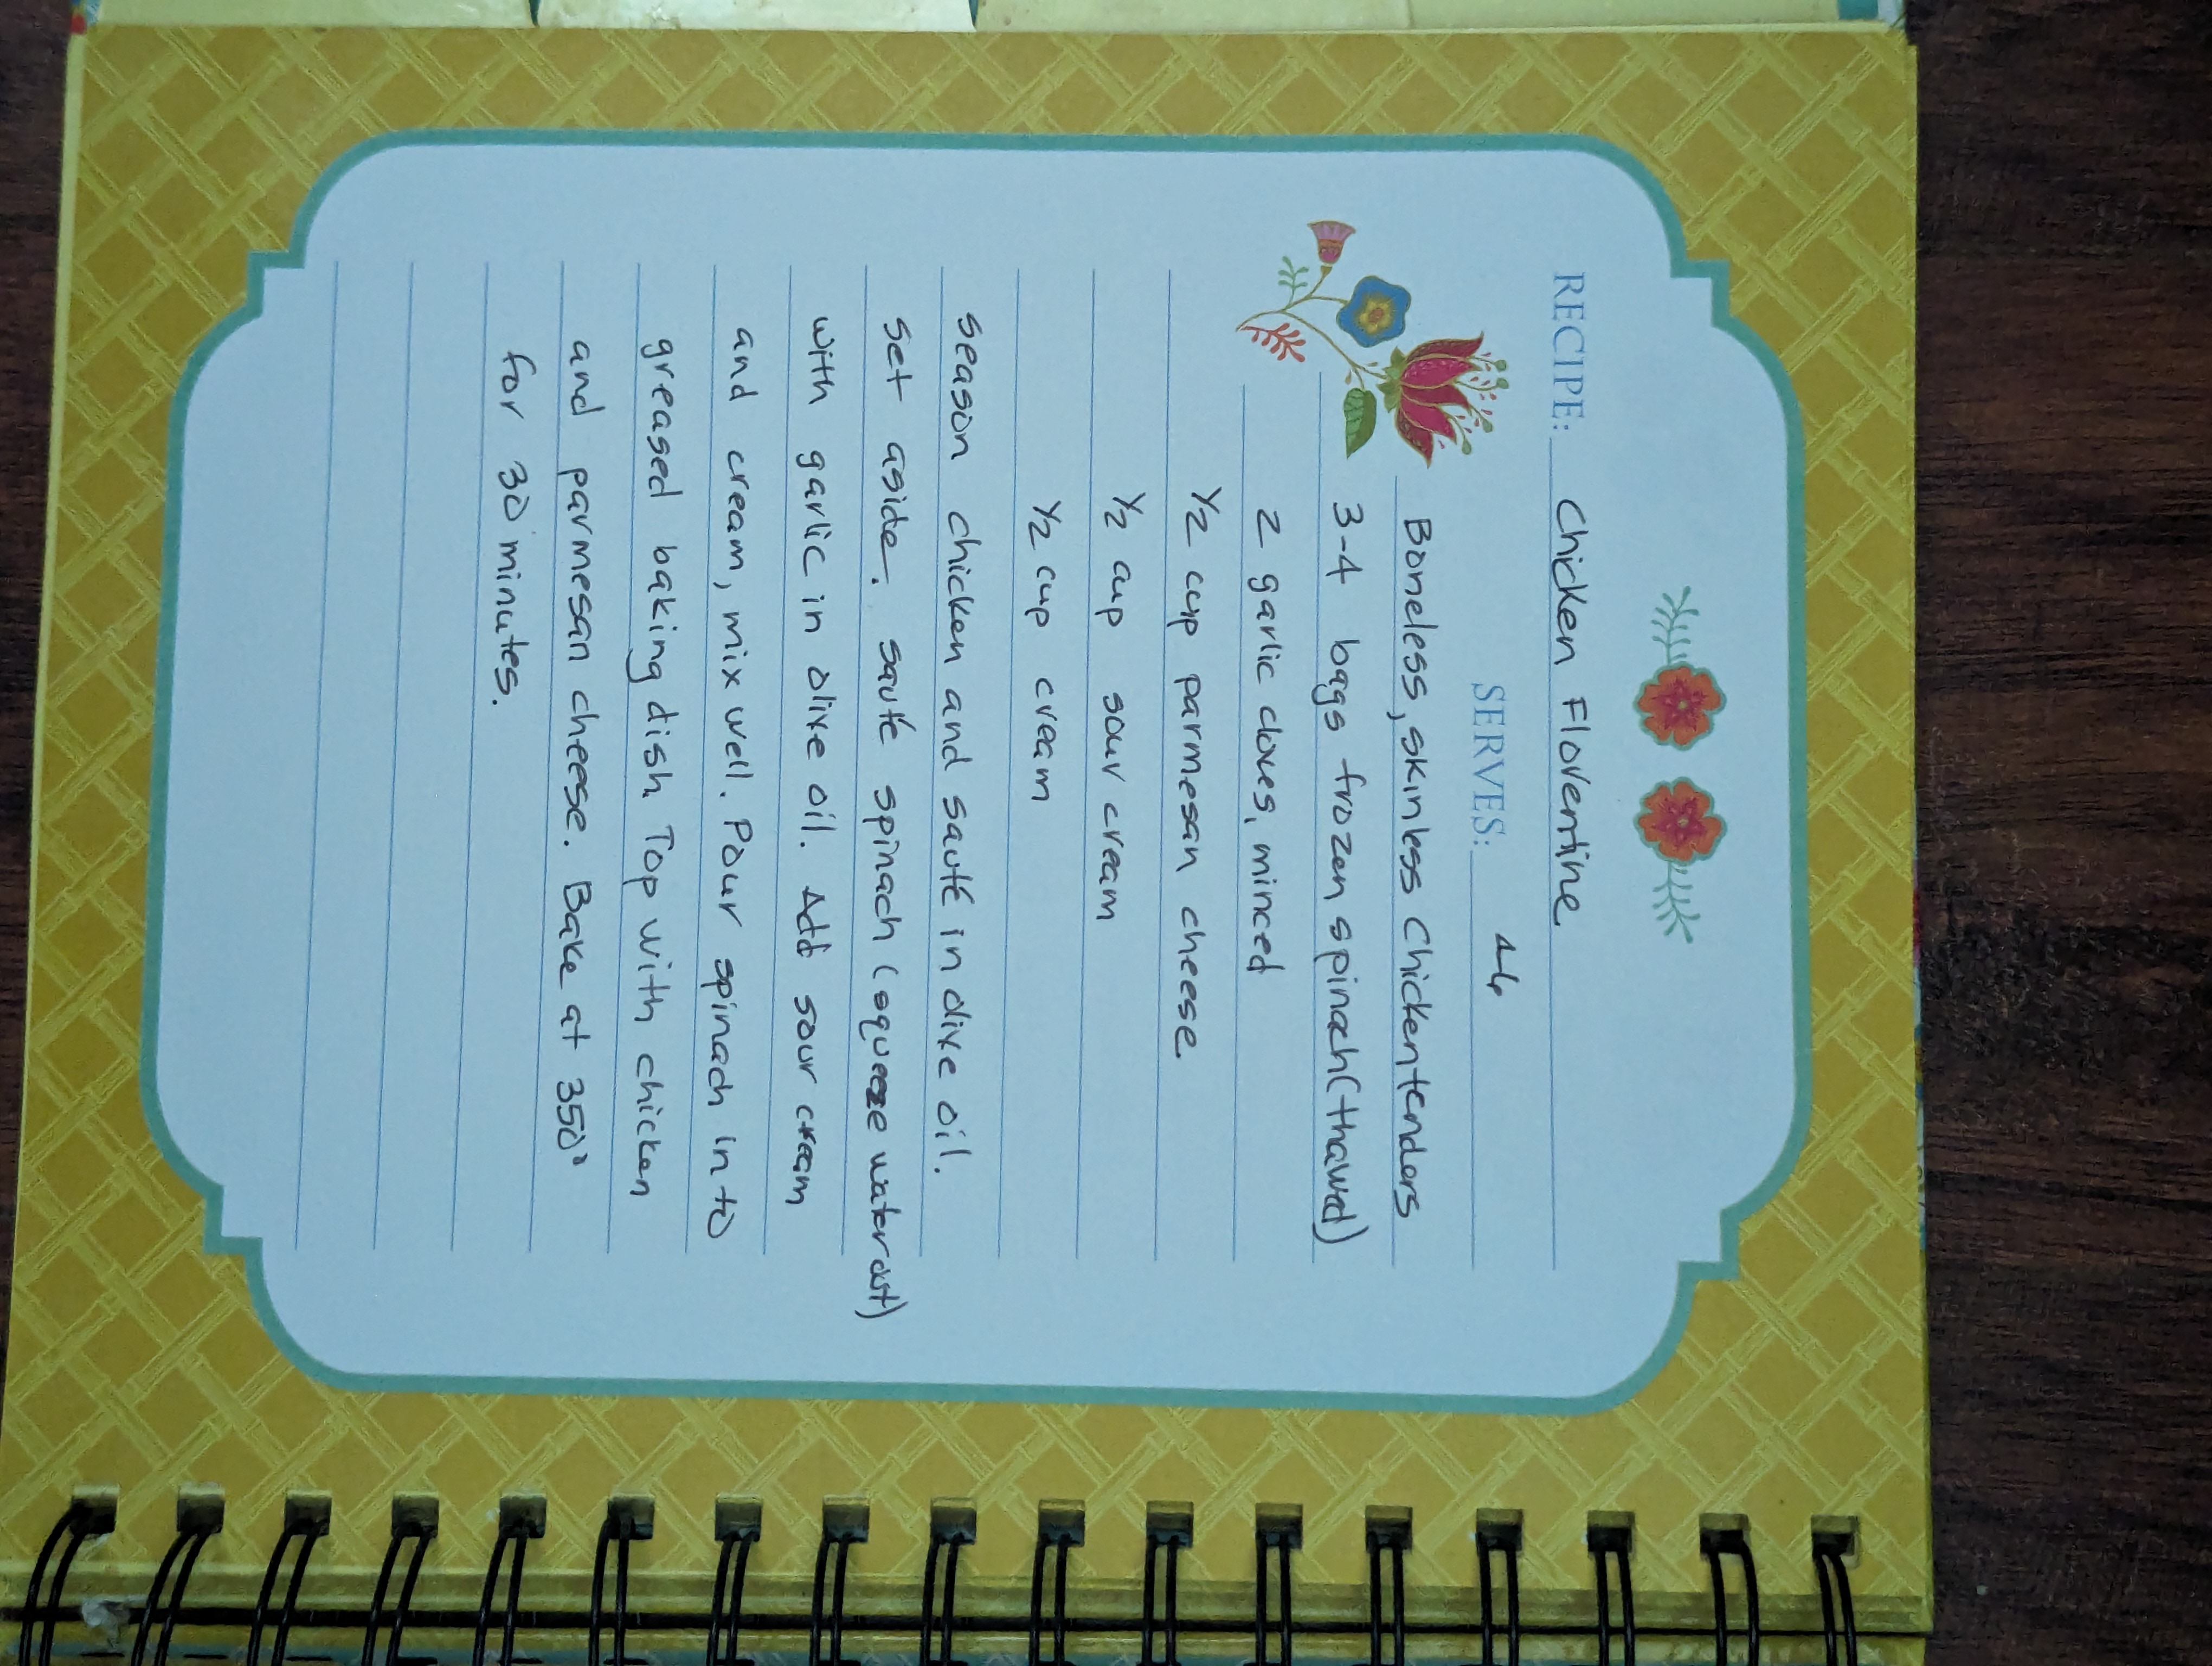 RECIPE: Chicken Florentine
SERVES: 4-6
Boneless, skinless chicken tenders
3-4 bags frozen spinach (thawed)
2 garlic cloves, minced
1/2 cup parmesan cheese
1/2 cup sour cream
1/2 cup cream
season chicken and sauté in olive oil.
set aside. sauté spinach (squeeze water out)
with garlic in olive oil. Add sour cream
and cream, mix well. Pour spinach in to
greased baking dish. Top with chicken
and parmesan cheese. Bake at 350°
for 30 minutes.